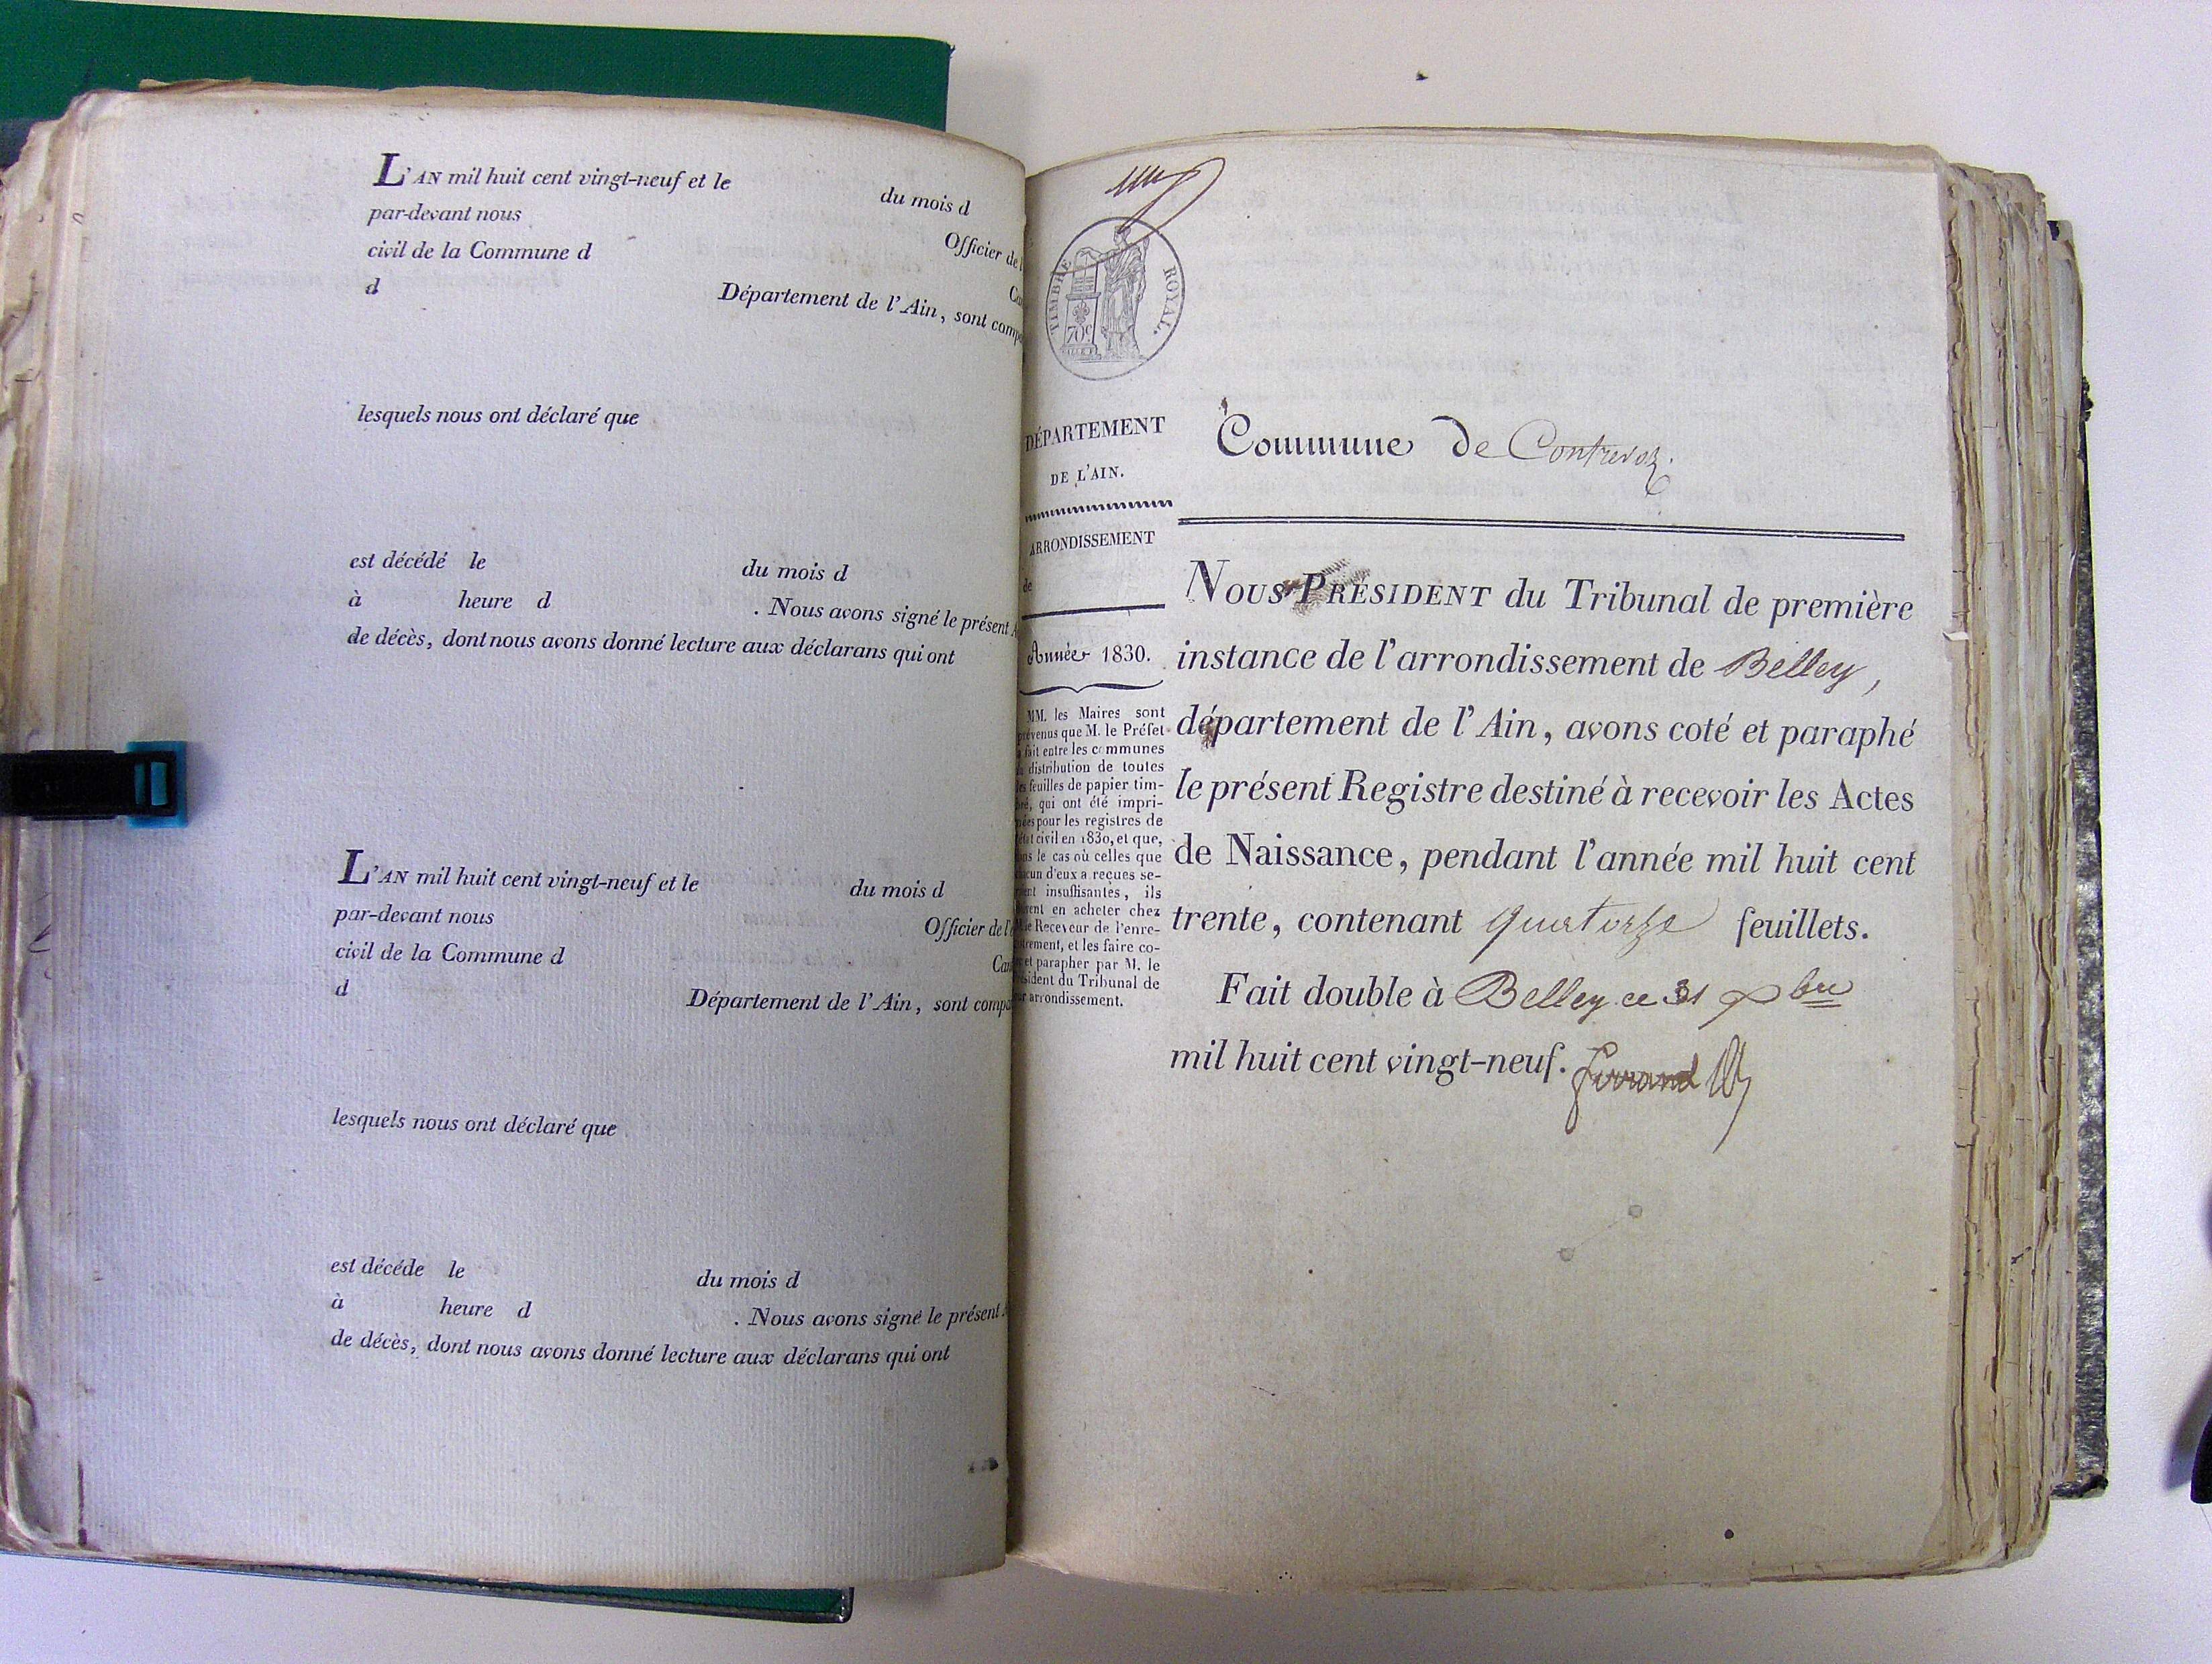 L'AN mil huit cent vingt-neuf et le du mois d
par-devant nous Officier de l'
civil de la Commune d Can
d Département de l'Ain, sont compa
lesquels nous ont déclaré que
est décédé le du mois d
à heure d . Nous avons signé le présent A
de décès, dont nous avons donné lecture aux déclarans qui ont
L'AN mil huit cent vingt-neuf et le du mois d
par-devant nous Officier de l'é
civil de la Commune d Can
d Département de l'Ain, sont compa
lesquels nous ont déclaré que
est décédé le du mois d
à heure d . Nous avons signé le présent A
de décès, dont nous avons donné lecture aux déclarans qui ont
TIMBRE ROYAL.
70c
DÉPARTEMENT
DE L'AIN.
ARRONDISSEMENT
de
Année 1830.
MM. les Maires sont
prévenus que M. le Préfet
a fait entre les communes
la distribution de toutes
les feuilles de papier tim-
bré, qui ont été impri-
mées pour les registres de
l'état civil en 1830, et que,
dans le cas où celles que
chacun d'eux a reçues se-
raient insuffisantes, ils
doivent en acheter chez
le Receveur de l'enre-
gistrement, et les faire co-
ter et parapher par M. le
Président du Tribunal de
leur arrondissement.
Commune de Contrevoz.
NOUS PRÉSIDENT du Tribunal de première
instance de l'arrondissement de Belley,
département de l'Ain, avons coté et paraphé
le présent Registre destiné à recevoir les Actes
de Naissance, pendant l'année mil huit cent
trente, contenant quatorze feuillets.
Fait double à Belley ce 31 Xbre
mil huit cent vingt-neuf. Ferrand